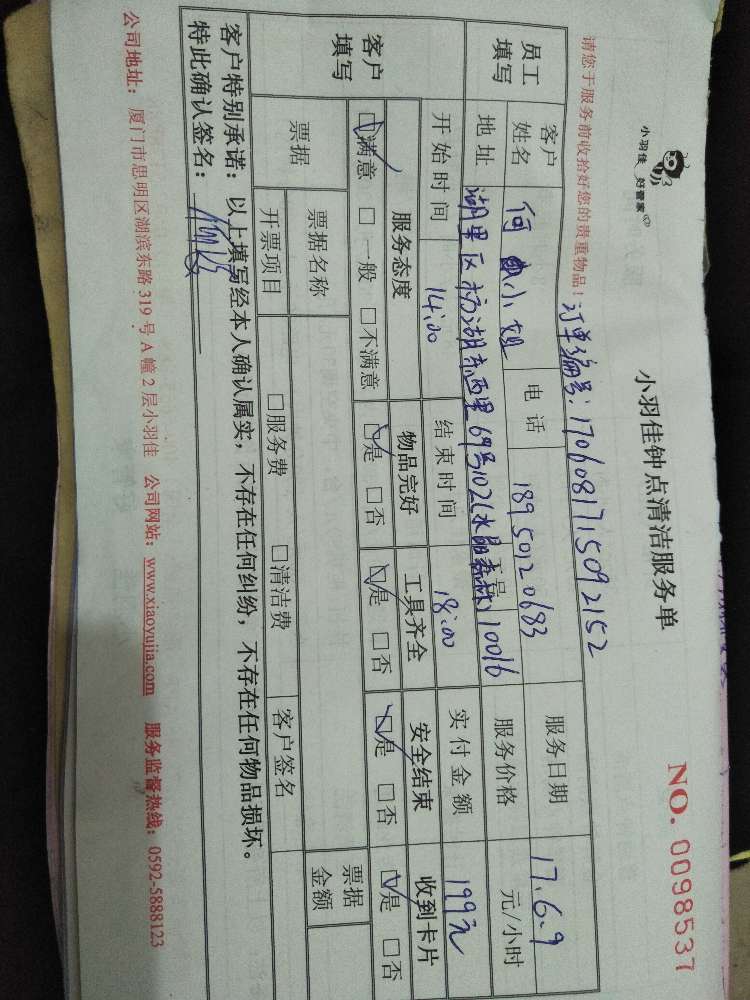 小羽佳 好管家
小羽佳钟点清洁服务单
NO. 0098537
请您于服务前收拾好您的贵重物品! 订单编号: 1706081715092152
员工填写 客户姓名 何小姐 电话 18950120683 服务日期 17.6.9
地址 湖里区枋湖东西里69号102(水晶森林) 工号 10016 服务价格 元/小时
开始时间 14:00 结束时间 18:00 实付金额 199元
客户填写 服务态度 物品完好 工具齐全 安全结束 收到卡片
☑满意 □一般 □不满意 ☑是 □否 ☑是 □否 ☑是 □否 ☑是 □否
票据 票据名称 票据金额
开票项目 □服务费 □清洁费 客户签名
客户特别承诺: 以上填写经本人确认属实, 不存在任何纠纷, 不存在任何物品损坏。
特此确认签名:
公司地址: 厦门市思明区湖滨东路 319 号 A 幢 2 层小羽佳 公司网站: www.xiaoyujia.com 服务监督热线: 0592-5888123